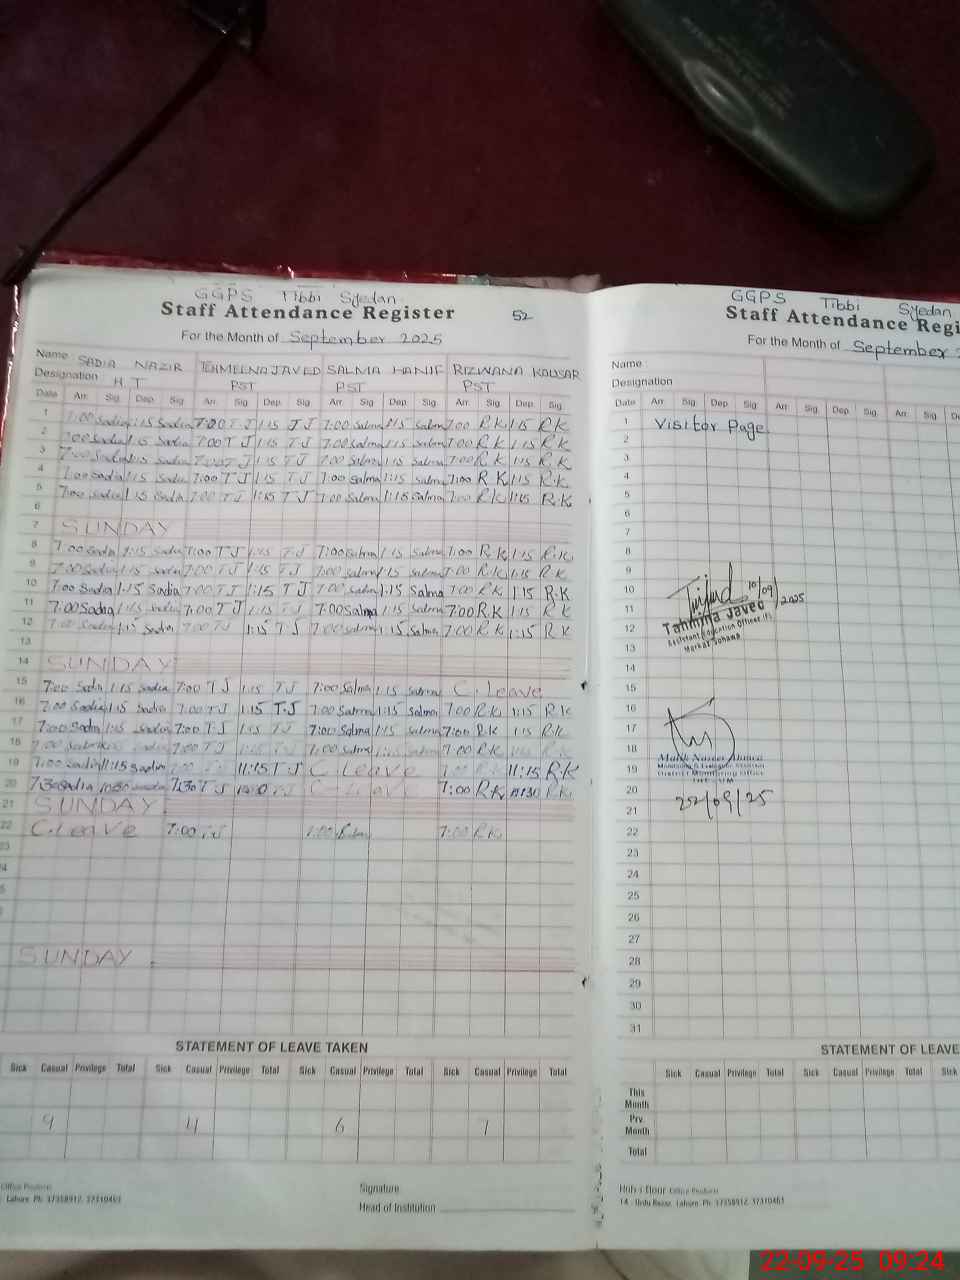 GGPS Tibbi Syedan
Staff Attendance Register 52
For the Month of September 2025
Name SADIA NAZIR TEHMEENA JAVED SALMA HANIF RIZWANA KAUSAR
Designation H T PST PST PST
Date Arr. Sig. Dep. Sig. Arr. Sig. Dep. Sig. Arr. Sig. Dep. Sig. Arr. Sig. Dep. Sig.
1 7:00 Sadia 1:15 Sadia 7:00 T J 1:15 T J 7:00 Salma 1:15 Salma 7:00 R K 1:15 R K
2 7:00 Sadia 1:15 Sadia 7:00 T J 1:15 T J 7:00 Salma 1:15 Salma 7:00 R K 1:15 R K
3 7:00 Sadia 1:15 Sadia 7:00 T J 1:15 T J 7:00 Salma 1:15 Salma 7:00 R K 1:15 R K
4 7:00 Sadia 1:15 Sadia 7:00 T J 1:15 T J 7:00 Salma 1:15 Salma 7:00 R K 1:15 R.K
5 7:00 Sadia 1:15 Sadia 7:00 T J 1:15 T J 7:00 Salma 1:15 Salma 7:00 R K 1:15 R.K
6
7 SUNDAY
8 7:00 Sadia 1:15 Sadia 7:00 T J 1:15 T J 7:00 Salma 1:15 Salma 7:00 R K 1:15 R.K
9 7:00 Sadia 1:15 Sadia 7:00 T J 1:15 T J 7:00 Salma 1:15 Salma 7:00 R K 1:15 R.K
10 7:00 Sadia 1:15 Sadia 7:00 T J 1:15 T J 7:00 Salma 1:15 Salma 7:00 R K 1:15 R.K
11 7:00 Sadia 1:15 Sadia 7:00 T J 1:15 T J 7:00 Salma 1:15 Salma 7:00 R.K 1:15 R K
12 7:00 Sadia 1:15 Sadia 7:00 T J 1:15 T J 7:00 Salma 1:15 Salma 7:00 R K 1:15 R K
13
14 SUNDAY
15 7:00 Sadia 1:15 Sadia 7:00 T J 1:15 T J 7:00 Salma 1:15 Salma C. Leave
16 7:00 Sadia 1:15 Sadia 7:00 T J 1:15 T.J 7:00 Salma 1:15 Salma 7:00 R.K 1:15 R.K
17 7:00 Sadia 1:15 Sadia 7:00 T J 1:15 T J 7:00 Salma 1:15 Salma 7:00 R K 1:15 R.K
18 7:00 Sadia 7:00 T J 1:15 T J 7:00 Salma 1:15 Salma 7:00 R K R K
19 7:00 Sadia 11:15 Sadia 11:15 T J C. Leave 11:15 R.K
20 7:30 Sadia 10:30 7:30 T J T J C. Leave 7:00 R K R K
21 SUNDAY
22 C. Leave 7:00 T J 7:00 7:00 R K
23
SUNDAY
STATEMENT OF LEAVE TAKEN
Sick Casual Privilege Total Sick Casual Privilege Total Sick Casual Privilege Total Sick Casual Privilege Total
9 4 6 7
Office Products
Lahore. Ph: 37358912, 37310463
Signature
Head of Institution
GGPS Tibbi Syedan
Staff Attendance Regi
For the Month of September
Name
Designation
Date Arr. Sig. Dep. Sig. Arr. Sig. Dep. Sig. Arr. Sig.
1 Visitor Page
2
3
4
5
6
7
8
9
10 10/09/2025
11 Tahmina Javed
12 Assistant Education Officer (F)
13 Markaz Sohawa
14
15
16
17
18
19 Malik Naseer Ahmed
Monitoring & Evaluation Assistant
District Monitoring Officer
20 JHELUM
21 22/09/25
22
23
24
25
26
27
28
29
30
31
STATEMENT OF LEAVE
Sick Casual Privilege Total Sick Casual Privilege Total Sick
This Month
Prv. Month
Total
Office Products
14 - Urdu Bazar, Lahore. Ph: 37358912, 37310463
22-09-25 09:24